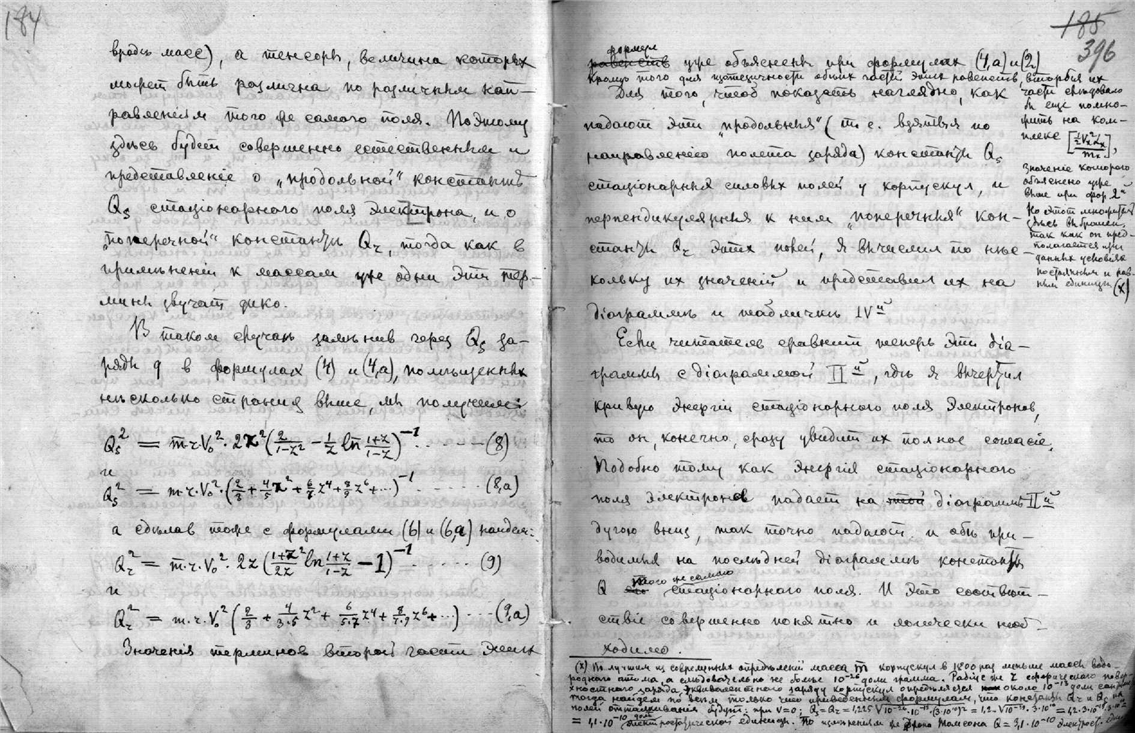 184
вродѣ массъ), а тензоры, величина которыхъ
можетъ быть различна по различнымъ нап-
равленіямъ того же самого поля. Поэтому
здѣсь будетъ совершенно естественнымъ и
представленіе о „продольной" константѣ
Qs стаціонарнаго поля электрона, и о
„поперечной" константѣ Qz, тогда какъ въ
примѣненіи къ массамъ уже одни эти тер-
мины звучатъ дико.
Въ такомъ случаѣ замѣнивъ черезъ Qs за-
рядъ q въ формулахъ (4) и (4,а), помѣщенныхъ
нѣсколько страницъ выше, мы получаемъ:
Qs² = m.r.V₀² · 2z² (2/(1-z²) - 1/z ln (1+z)/(1-z))⁻¹ . . . . . . (8)
и
Qs² = m.r.V₀² · (2/3 + 4/5 z² + 6/7 z⁴ + 8/9 z⁶ + ...)⁻¹ . . . . . (8,а)
а сдѣлавъ тоже съ формулами (6) и (6,а) найдемъ:
Qz² = m.r.V₀² · 2z ((1+z²)/2z ln (1+z)/(1-z) - 1)⁻¹ . . . . . . (9)
и
Qz² = m.r.V₀² (2/3 + 4/3·5 z² + 6/5·7 z⁴ + 8/7·9 z⁶ + ...) . . . . (9,а)
Значенія терминовъ второй части этихъ
185
396
формулъ
уже объяснены при формулахъ (4,а) и (2)
Кромѣ того для тождественности обѣихъ частей этихъ равенствъ, вторыя ихъ
части слѣдовало
бы еще помно-
жить на ком-
плексъ
значеніе котораго
объяснено уже
выше при фор. 2ой
Но этотъ множитель
здѣсь выброшенъ,
такъ какъ онъ пред-
полагается при
данныхъ условіяхъ
постояннымъ и рав-
нымъ единицѣ (х)
Для того, чтобъ показать наглядно, какъ
падаютъ эти „продольныя" (т. е. взятыя по
направленію полета заряда) константы Qs
стаціонарныхъ силовыхъ полей у корпускулъ, и
перпендикулярныя къ нимъ „поперечныя" кон-
станты Qz этихъ полей, я вычислилъ по нѣс-
кольку ихъ значеній и представилъ ихъ на
діаграммѣ и табличкѣ IVой
Если читатель сравнитъ теперь эти діа-
граммы съ діаграммой IIой, гдѣ я вычертилъ
кривую энергіи стаціонарнаго поля электроновъ,
то онъ, конечно, сразу увидитъ ихъ полное согласіе.
Подобно тому какъ энергія стаціонарнаго
поля электроновъ падаетъ на діаграммѣ IIой
дугою внизъ, такъ точно падаютъ и обѣ при-
водимыя на послѣдней діаграммѣ константы
Q того же самаго стаціонарнаго поля. И это соотвѣт-
ствіе совершенно понятно и логически необ-
ходимо.
(х) По лучшимъ изъ современныхъ опредѣленій масса m корпускулъ въ 1800 разъ меньше массы водо-
роднаго атома, а слѣдовательно не больше 10⁻²⁶ доли грамма. Радіусъ же r сферическаго повер-
хностнаго заряда, эквивалентнаго заряду корпускулъ опредѣляется около 10⁻¹³ доли сант.
тогда найдемъ по всѣмъ только что приведеннымъ формуламъ, что константы Qz и Qs
полей отталкиванія будутъ: при v=0; Qs = Qz = 1,225
= 4,1·10⁻¹⁰ дол. электростатической единицы. По измѣреніямъ же Джона Томсона Q = 3,1·10⁻¹⁰